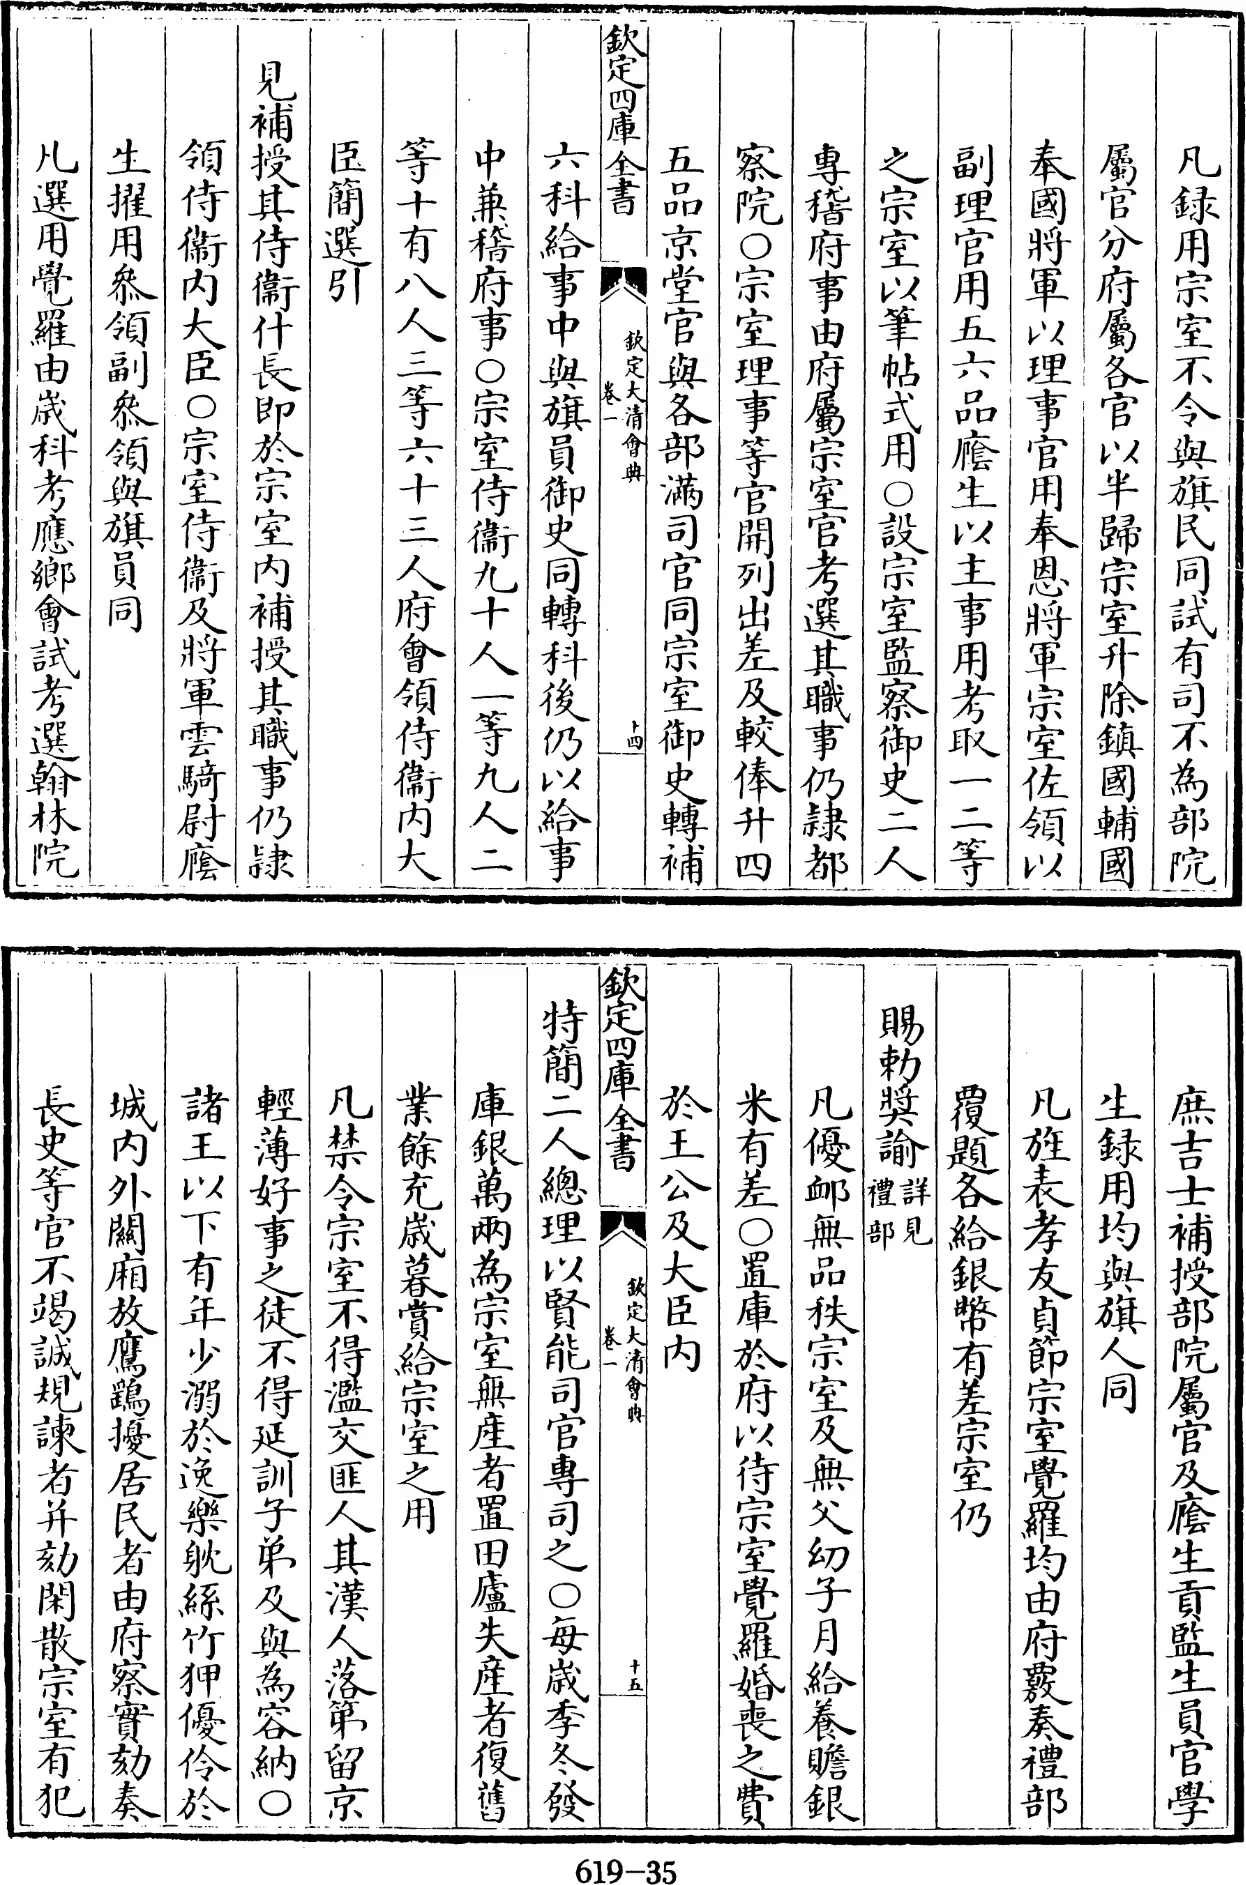 凡録用宗室不令與旗民同試有司不為部院
屬官分府屬各官以半歸宗室升除鎮國輔國
奉國將軍以理事官用奉恩將軍宗室佐領以
副理官用五六品廕生以主事用考取一二等
之宗室以筆帖式用○設宗室監察御史二人
專稽府事由府屬宗室官考選其職事仍隷都
察院○宗室理事等官開列出差及較俸升四
五品京堂官與各部滿司官同宗室御史轉補
欽定四庫全書
欽定大清會典
卷一
十四
六科給事中與旗員御史同轉科後仍以給事
中兼稽府事○宗室侍衞九十人一等九人二
等十有八人三等六十三人府會領侍衞内大
臣簡選引
見補授其侍衞什長即於宗室内補授其職事仍隷
領侍衞内大臣○宗室侍衞及將軍雲騎尉廕
生擢用叅領副叅領與旗員同
凡選用覺羅由歲科考應鄉會試考選翰林院
庶吉士補授部院屬官及廕生貢監生員官學
生録用均與旗人同
凡旌表孝友貞節宗室覺羅均由府覈奏禮部
覆題各給銀幣有差宗室仍
賜勅奬諭詳見禮部
凡優卹無品秩宗室及無父幼子月給養贍銀
米有差○置庫於府以待宗室覺羅婚喪之費
於王公及大臣内
欽定四庫全書
欽定大清會典
卷一
十五
特簡二人總理以賢能司官專司之○每歲季冬發
庫銀萬兩為宗室無產者置田廬失產者復舊
業餘充歲暮賞給宗室之用
凡禁令宗室不得濫交匪人其漢人落第留京
輕薄好事之徒不得延訓子弟及與為容納○
諸王以下有年少溺於逸樂躭絲竹狎優伶於
城内外關廂放鷹鷂擾居民者由府察實劾奏
長史等官不竭誠規諫者并劾閑散宗室有犯
619-35